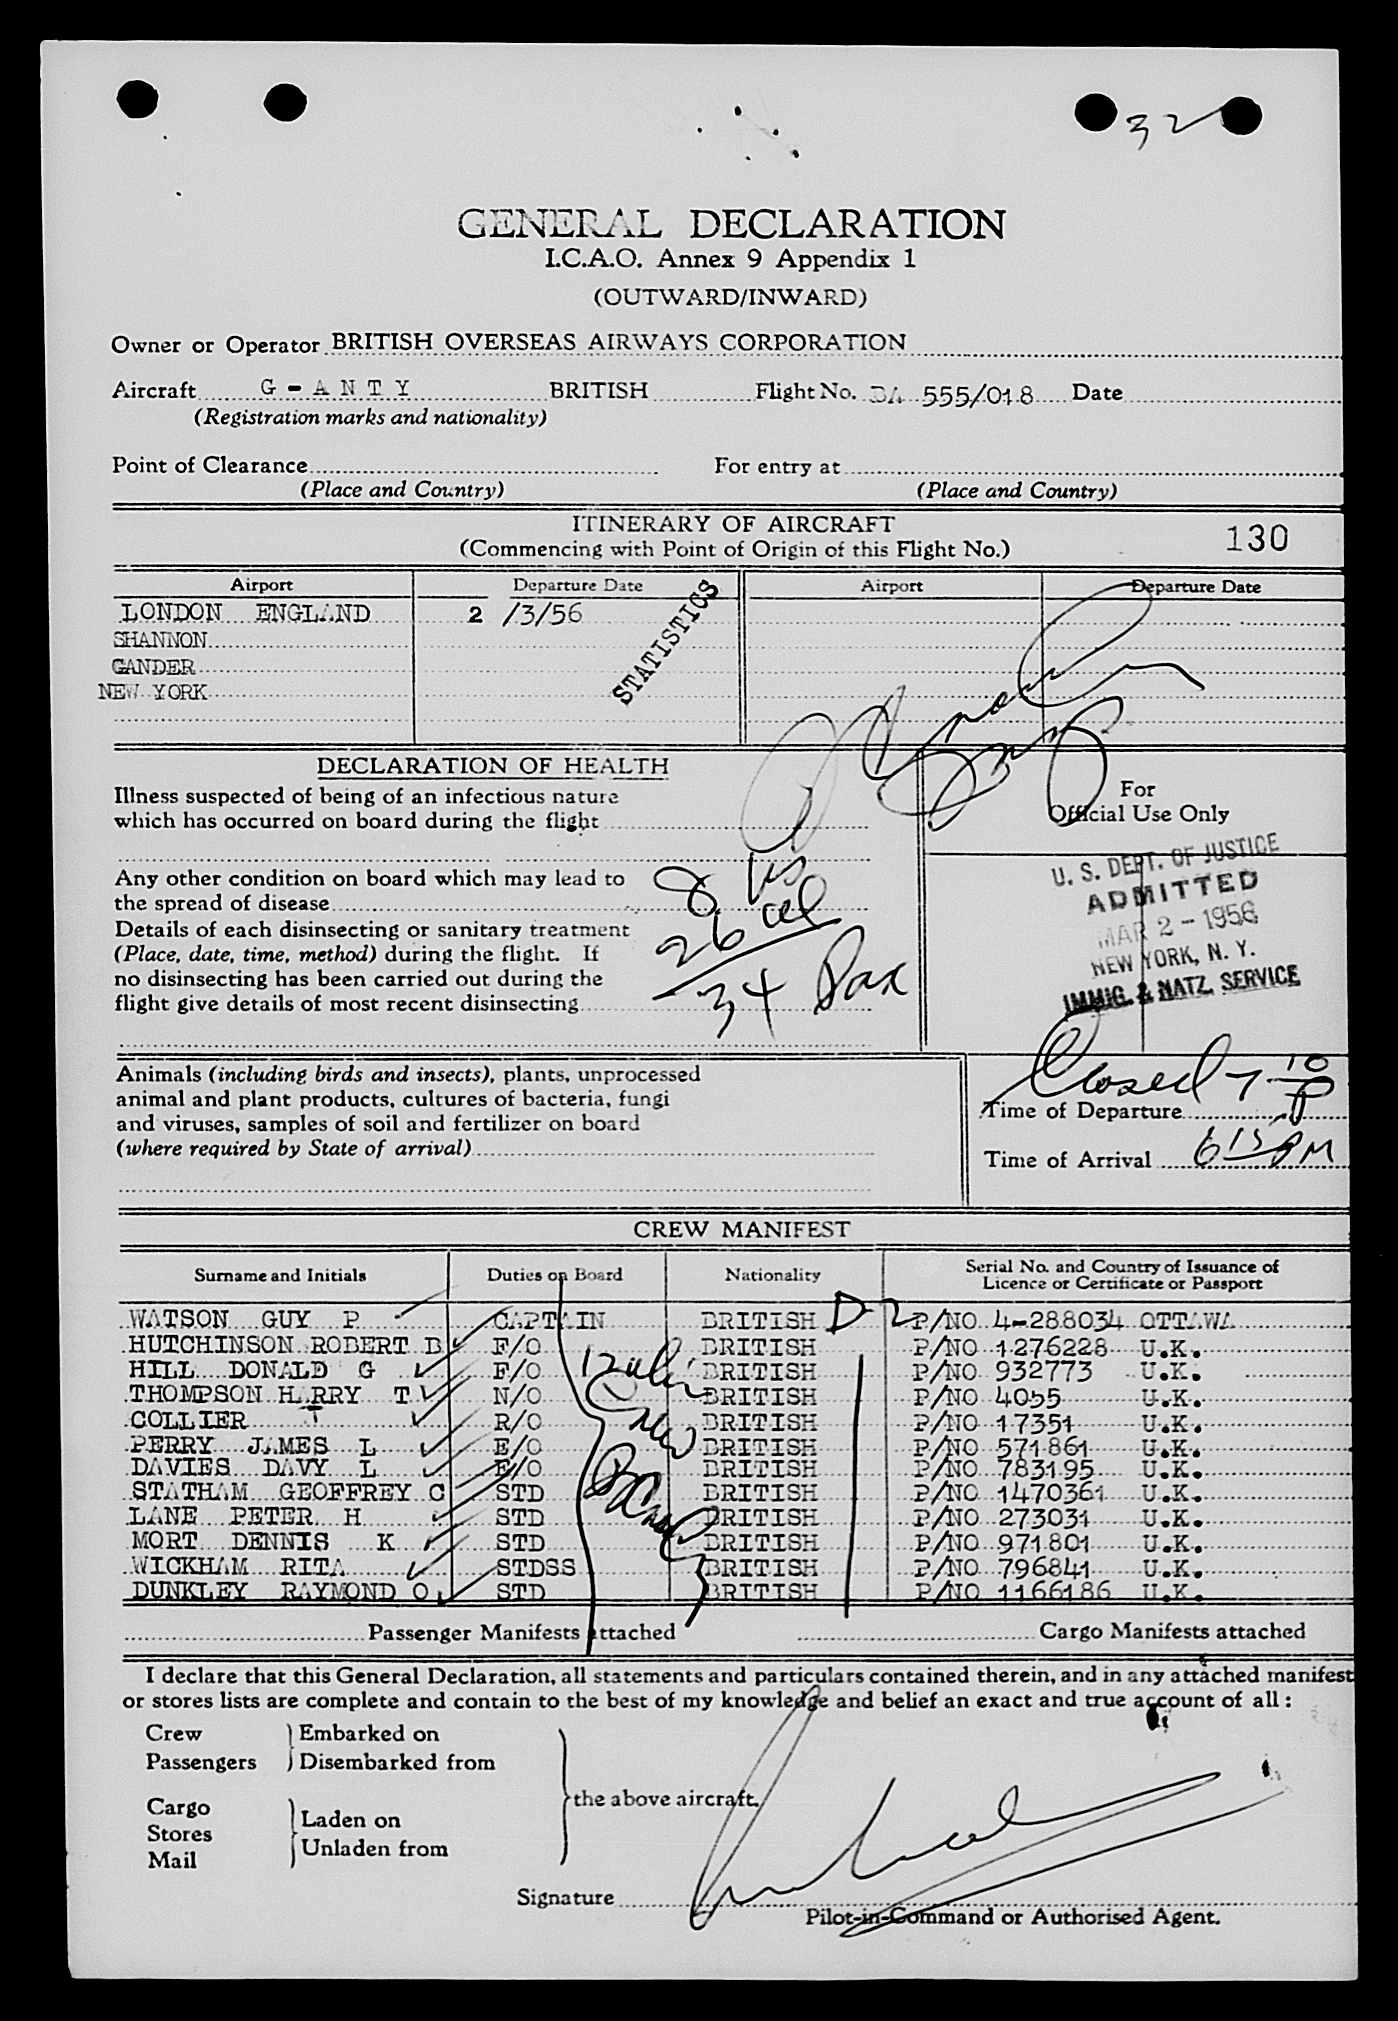 32
GENERAL DECLARATION
I.C.A.O. Annex 9 Appendix 1
(OUTWARD/INWARD)
Owner or Operator BRITISH OVERSEAS AIRWAYS CORPORATION
Aircraft G - A N T Y BRITISH Flight No. BA 555/018 Date
(Registration marks and nationality)
Point of Clearance For entry at
(Place and Country) (Place and Country)
ITINERARY OF AIRCRAFT
(Commencing with Point of Origin of this Flight No.) 130
Airport Departure Date Airport Departure Date
LONDON ENGLAND 2 /3/56
SHANNON
GANDER
NEW YORK
STATISTICS
DECLARATION OF HEALTH
Illness suspected of being of an infectious nature
which has occurred on board during the flight
For
Official Use Only
Any other condition on board which may lead to
the spread of disease
Details of each disinsecting or sanitary treatment
(Place, date, time, method) during the flight. If
no disinsecting has been carried out during the
flight give details of most recent disinsecting
8 US
26 al
34 Pax
U. S. DEPT. OF JUSTICE
ADMITTED
MAR 2 - 1956
NEW YORK, N. Y.
IMMIG. & NATZ. SERVICE
Animals (including birds and insects), plants, unprocessed
animal and plant products, cultures of bacteria, fungi
and viruses, samples of soil and fertilizer on board
(where required by State of arrival)
Closed 7 10 P
Time of Departure
Time of Arrival 6 15 PM
CREW MANIFEST
Surname and Initials Duties on Board Nationality Serial No. and Country of Issuance of Licence or Certificate or Passport
WATSON GUY P CAPTAIN BRITISH D-2 P/NO 4-288034 OTTAWA
HUTCHINSON ROBERT B F/O BRITISH P/NO 1276228 U.K.
HILL DONALD G F/O BRITISH P/NO 932773 U.K.
THOMPSON HARRY T N/O BRITISH P/NO 4055 U.K.
COLLIER T R/O BRITISH P/NO 17351 U.K.
PERRY JAMES L E/O BRITISH P/NO 571861 U.K.
DAVIES DAVY L E/O BRITISH P/NO 783195 U.K.
STATHAM GEOFFREY C STD BRITISH P/NO 1470361 U.K.
LANE PETER H STD BRITISH P/NO 273031 U.K.
MORT DENNIS K STD BRITISH P/NO 971801 U.K.
WICKHAM RITA STDSS BRITISH P/NO 796841 U.K.
DUNKLEY RAYMOND O STD BRITISH P/NO 1166186 U.K.
Passenger Manifests attached Cargo Manifests attached
I declare that this General Declaration, all statements and particulars contained therein, and in any attached manifest
or stores lists are complete and contain to the best of my knowledge and belief an exact and true account of all :
Crew Embarked on
Passengers Disembarked from
the above aircraft.
Cargo Laden on
Stores
Unladen from
Mail
Signature
Pilot-in-Command or Authorised Agent.